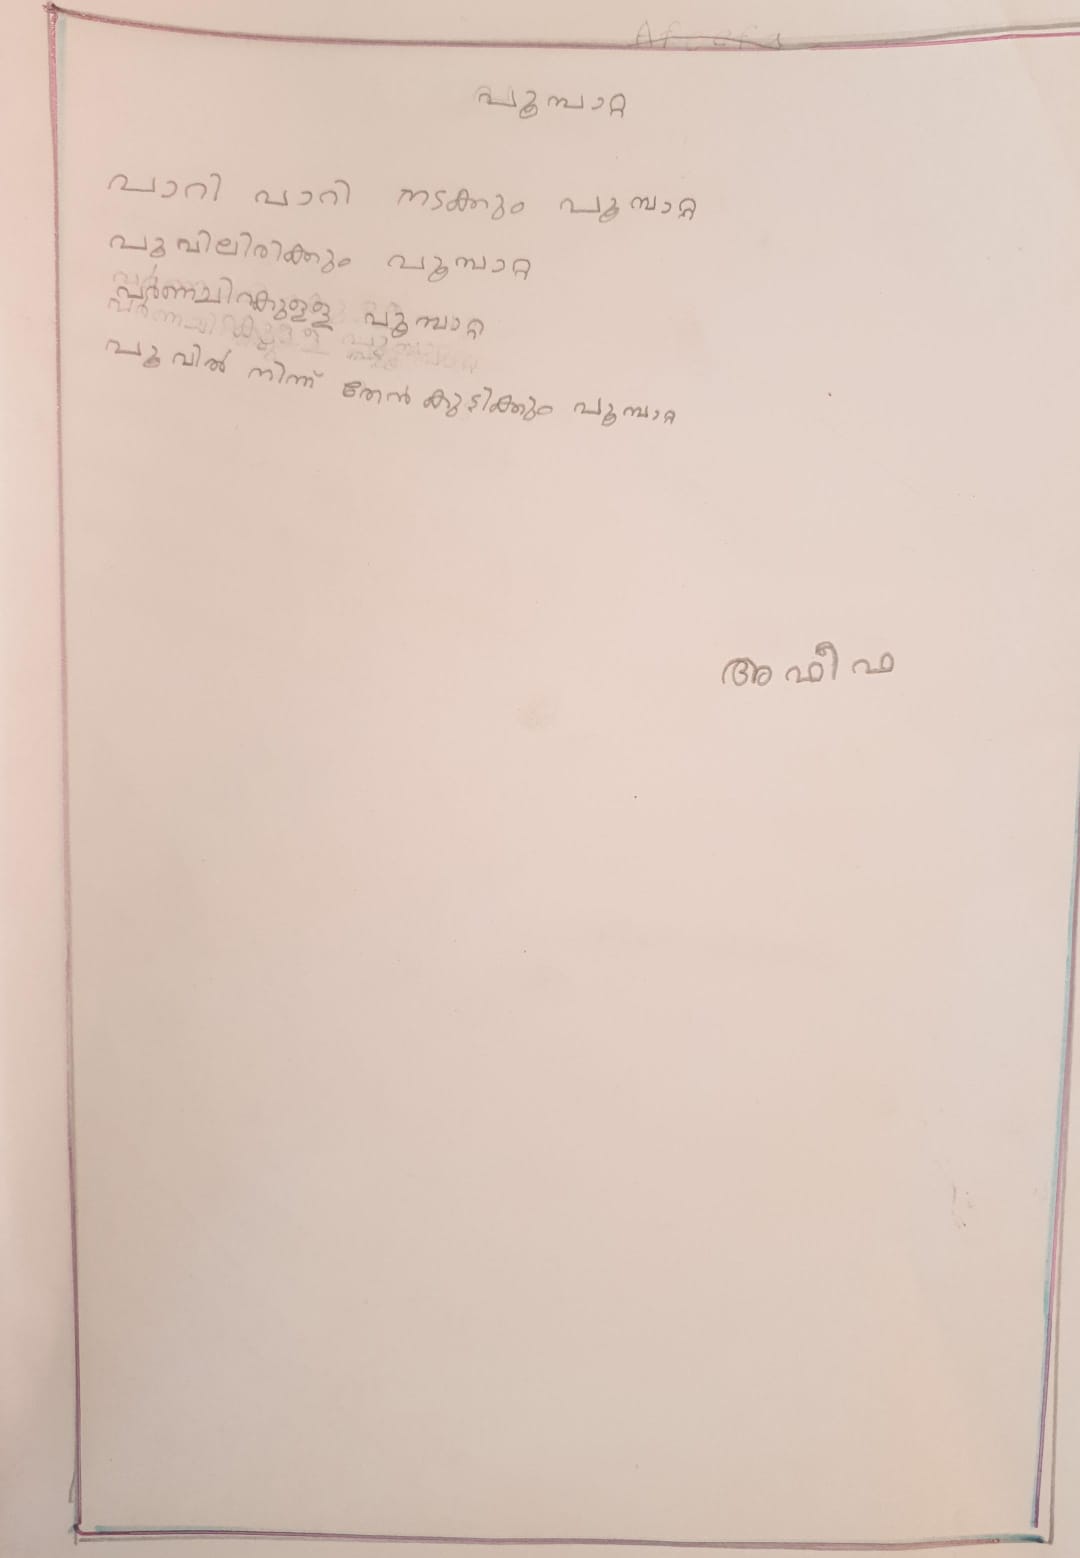 Afeefa
പൂമ്പാറ്റ
പാറി പാറി നടക്കും പൂമ്പാറ്റ
പൂവിലിരിക്കും പൂമ്പാറ്റ
പൂമ്പാറ്റ
പൂവിൽ നിന്ന് തേൻ കുടിക്കും പൂമ്പാറ്റ
അഫീഫ